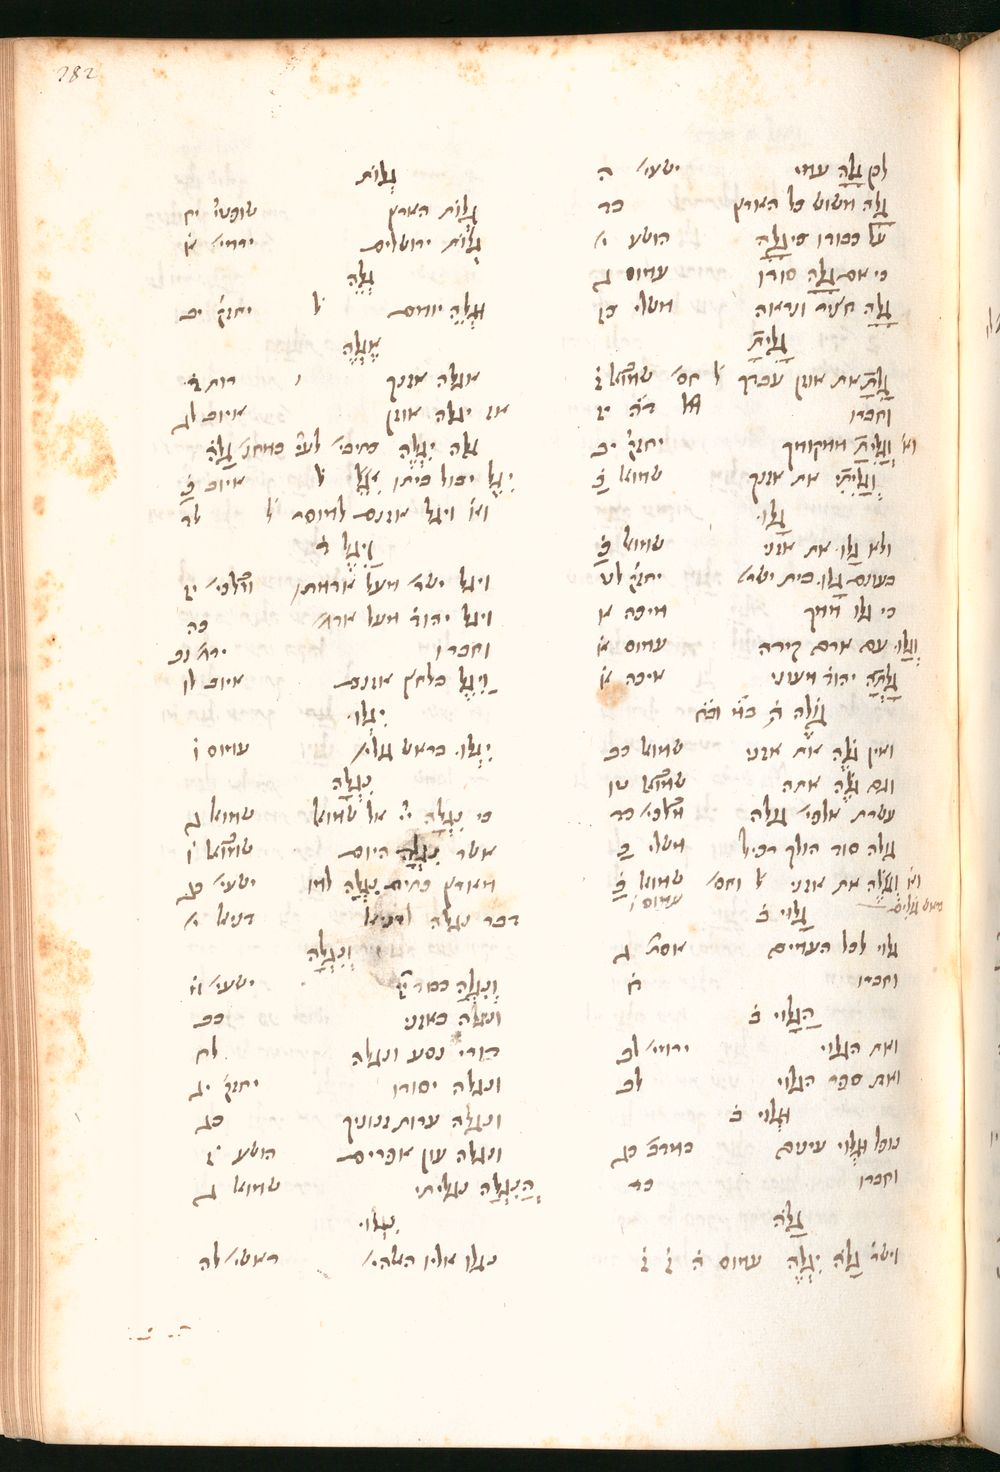 282
לכן גָלָה עמי ישעי׳ ה
גָלָה משוש כל הארץ כד
על כבודו כי גָלָה הושע י׳
כי אם גָלָה סודו עמוס ג
גָלָה חציר ונראה משלי כז
גָלִיתָ
גָלִיתָ את אוזן עבדך ל׳ חס׳ שמואל ז
וחברו דה יז
וא׳ וְגָלִיתָ ממקומך יחזק׳ יב
וְגָלִיתִי את אזנך שמואל כ
גָלוּ
ולא גָלוּ את אזני שמואל כב
בעונם גָלוּ בית ישר׳ יחזק׳ לט
כי גלו ממך מיכה א
וְגָלוּ עם ארם קירה עמוס א
גָלְתָה יהוד׳ מעוני איכה א
גולה
ואין גֹלֶה את אזני שמואל כב
וגם גֹלֶה אתה שמואל טו
עשרת אלפי׳ גולה מלכי׳ כד
גולה סוד הולך רכיל משלי כ
וא׳ וְגֹלֶה את אזני ל׳ וחס׳ שמואל כב
גָלוּי ב
גלוי לכל העמים אסת׳ ג
וחברו ח
הַגָלוּי ב
ואת הגלוי ירמי׳ לב
ואת ספר הגלוי לב
וּגְלוּי ב
נופל וגלוי עינים במדב׳ כד
וחברו כד
גָלֹה
וישר׳ גָלֹה יִגְלֶה עמוס ז
גְלוֹת
גְלוֹת הארץ שופטי׳ יח
גְלוֹת ירושלים ירמי׳ א
גְלֵה
וּגְלֵה יומם ל׳ יחזק׳ יב
אֶגְלֶה
אגלה אזנך רות ד
אז יגלה אוזן איוב לג
גלה יִגְלֶה
יִגֶל יבול ביתו ל׳ איוב כ
וא׳ ויגל אזנם למוסר ל׳ לו
וַיִגֶל ד
ויגל ישר׳ מעל אדמתו מלכי׳ יז
ויגל יהוד׳ מעל אדמ׳ כה
וחברו ירמ׳ נב
וַיִגֶל בלחץ אזנם איוב לו
יִגְלוּ
יִגְלוּ בראש גולי׳ עמוס ו
נִגְלָה
כי נִגְלָה יי׳ אל שמואל שמואל ג
אשר נִגְלָה היום שמואל ו
מארץ כתים נִגְלָה למו ישעי׳ כג
דבר נגלה לדניאל דניאל י׳
וְנִגְלָה
וְנִגְלָה כבוד יי׳ ישעי׳ מ
ונגלה באזני כב
דורי נסע ונגלה לח
ונגלה יסודו יחזק׳ יג
ונגלה ערות זנוניך כג
ונגלה עון אפרים הושע ז
הֲנִגְלֹה נגליתי שמואל ב
נִגְלוּ
נגלו אליו האלהי׳ בראשי׳ לה